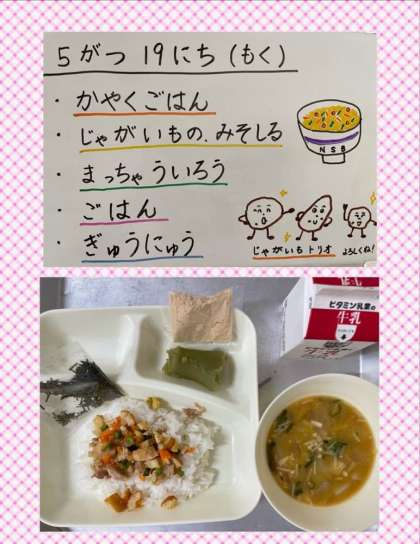 5がつ 19にち (もく)
・かやくごはん
・じゃがいもの、みそしる
・まっちゃういろう
・ごはん
・ぎゅうにゅう
NSB
じゃがいもトリオ
よろしくね!
ビタミン乳業の
牛乳